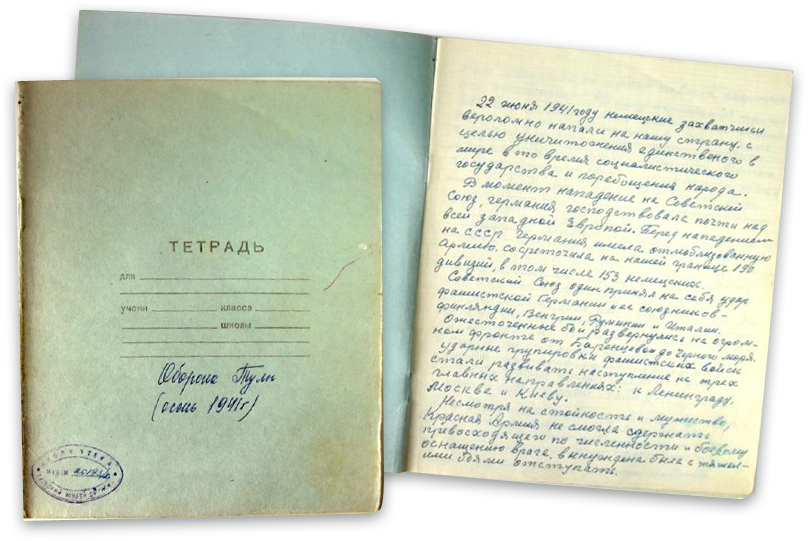 ТЕТРАДЬ
для
учени класса
школы
Оборона Тулы
(осень 1941г)
БИБЛИОТЕКА
22 июня 1941 году немецкие захватчики
вероломно напали на нашу страну, с
целью уничтожения единственого в
мире в то время социалистического
государства и порабощения народа.
В момент нападение на Советский
Союз, германия господствовала почти над
всей западной Европой. Перед нападением
на СССР Германия имела отмобилизованную
армию. сосреточила на нашей границе 190
дивизий, в том числе 153 немецких.
Советский Союз один принял на себя удар
фашистской Германии и ее союзников -
финляндии, Венгрии, Румынии и Италии.
Ожесточенные бои развернулись на огром-
ном фронте от Баренцового до Черного моря.
ударные групировки фашистских войск
стали развивать наступление на трех
главных направлениях: к Ленинграду,
Москве и Киеву.
Несмотря на стойкость и мужество,
Красная Армия не смогла сдержать
превосходящего по численности и боевому
оснащению врага. вынуждена была с тяжел-
ыми боями отступать.